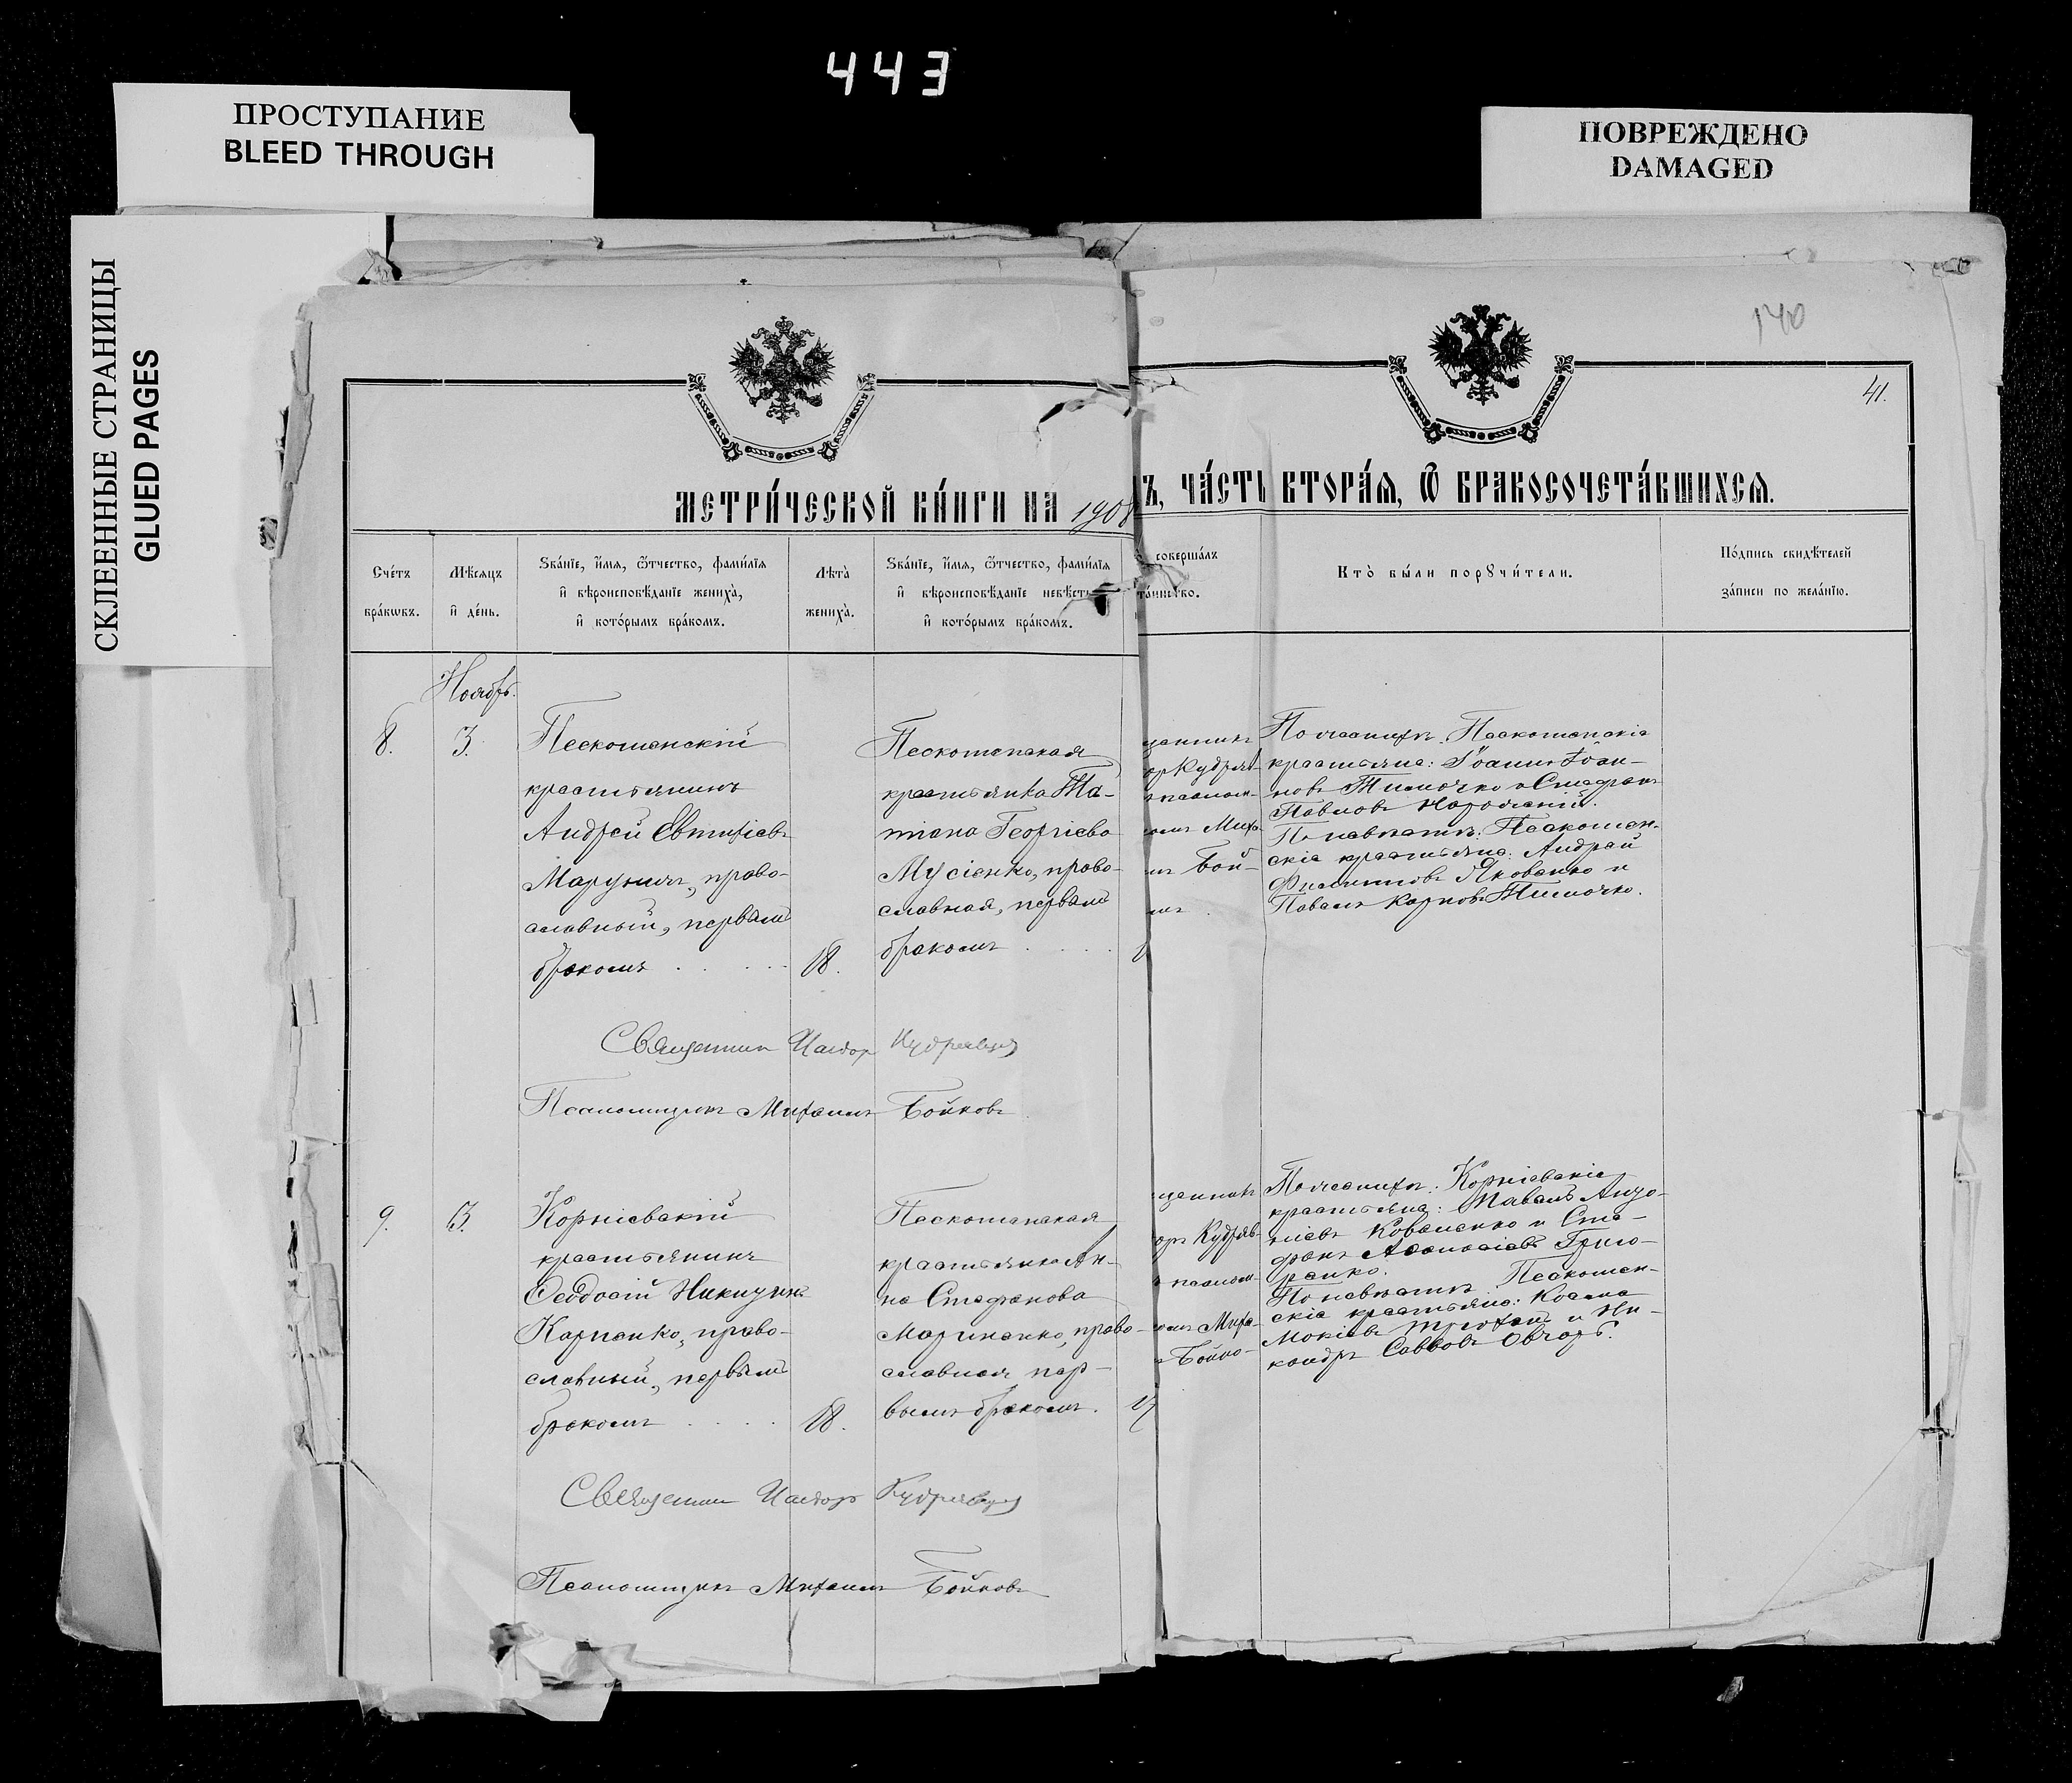 443
ПРОСТУПАНИЕ
BLEED THROUGH
ПОВРЕЖДЕНО
DAMAGED
СКЛЕЕННЫЕ СТРАНИЦЫ
GLUED PAGES
140
41.
МЕТРИ́ЧЕСКОЙ КНИ́ГИ НА 1908
Ъ, ЧА́СТЬ ВТОРА́Я, Ѡ БРАКОСОЧЕТА́ВШИХСЯ.
Сче́тъ бра́ковъ.
Мѣ́сяцъ и де́нь.
Зва́нїе, и́мя, ѻ҆́тчество, фами́лїя
и҆ вѣроисповѣ́данїе жениха̀,
и҆ кото́рымъ бра́комъ.
Лѣта̀ жениха̀.
Зва́нїе, и́мя, ѻ҆́тчество, фами́лїя
и҆ вѣроисповѣ́данїе невѣ́ст
и҆ кото́рымъ бра́комъ.
соверша́лъ
та́инство.
Кто̀ бы́ли порꙋчи́тели.
По́дпись свидѣ́телей
за́писи по жела́нїю.
Ноябрь.
8.
3.
Пескошенскій
крестьянинъ
Андрей Евтихіевъ
православный, первымъ
бракомъ
18.
Пескошенская
крестьянка Та-
тіана Георгіева
Мусіенко, право-
славная, первымъ
бракомъ
щенник
ор Кудряв-
псалом-
Миха
Бой-
По женихѣ: Пескошенскіе
крестьяне: Іоаннъ Іоан-
новъ Тимочко и Стефанъ
Павловъ
По невѣстѣ: Пескошен-
скіе крестьяне: Андрей
Филипповъ Яковенко и
Павелъ Карповъ Тимочко.
Священник Нестор Кудрявцев
Псаломщикъ Михаилъ Бойковъ
9.
Корніевскій
крестьянинъ
Ѳеодосій Никитинъ
Карпенко, право-
славный, первымъ
бракомъ
18.
Пескошенская
крестьянка Ан-
на Стефанова
Мариненко, право-
славная, пер-
вымъ бракомъ.
17
щенник
оръ Кудряв-
псалом-
Миха-
Бойко-
По женихѣ: Корніевскіе
крестьяне: Павелъ
Коваленко и Сте-
фанъ Аѳанасіевъ Григо-
ренко.
По невѣстѣ: Пескошен-
скіе крестьяне: Косма
Мокіевъ и Ни-
кандръ Саввовъ Овчаръ.
Священник Нестор Кудрявцев
Псаломщикъ Михаилъ Бойковъ